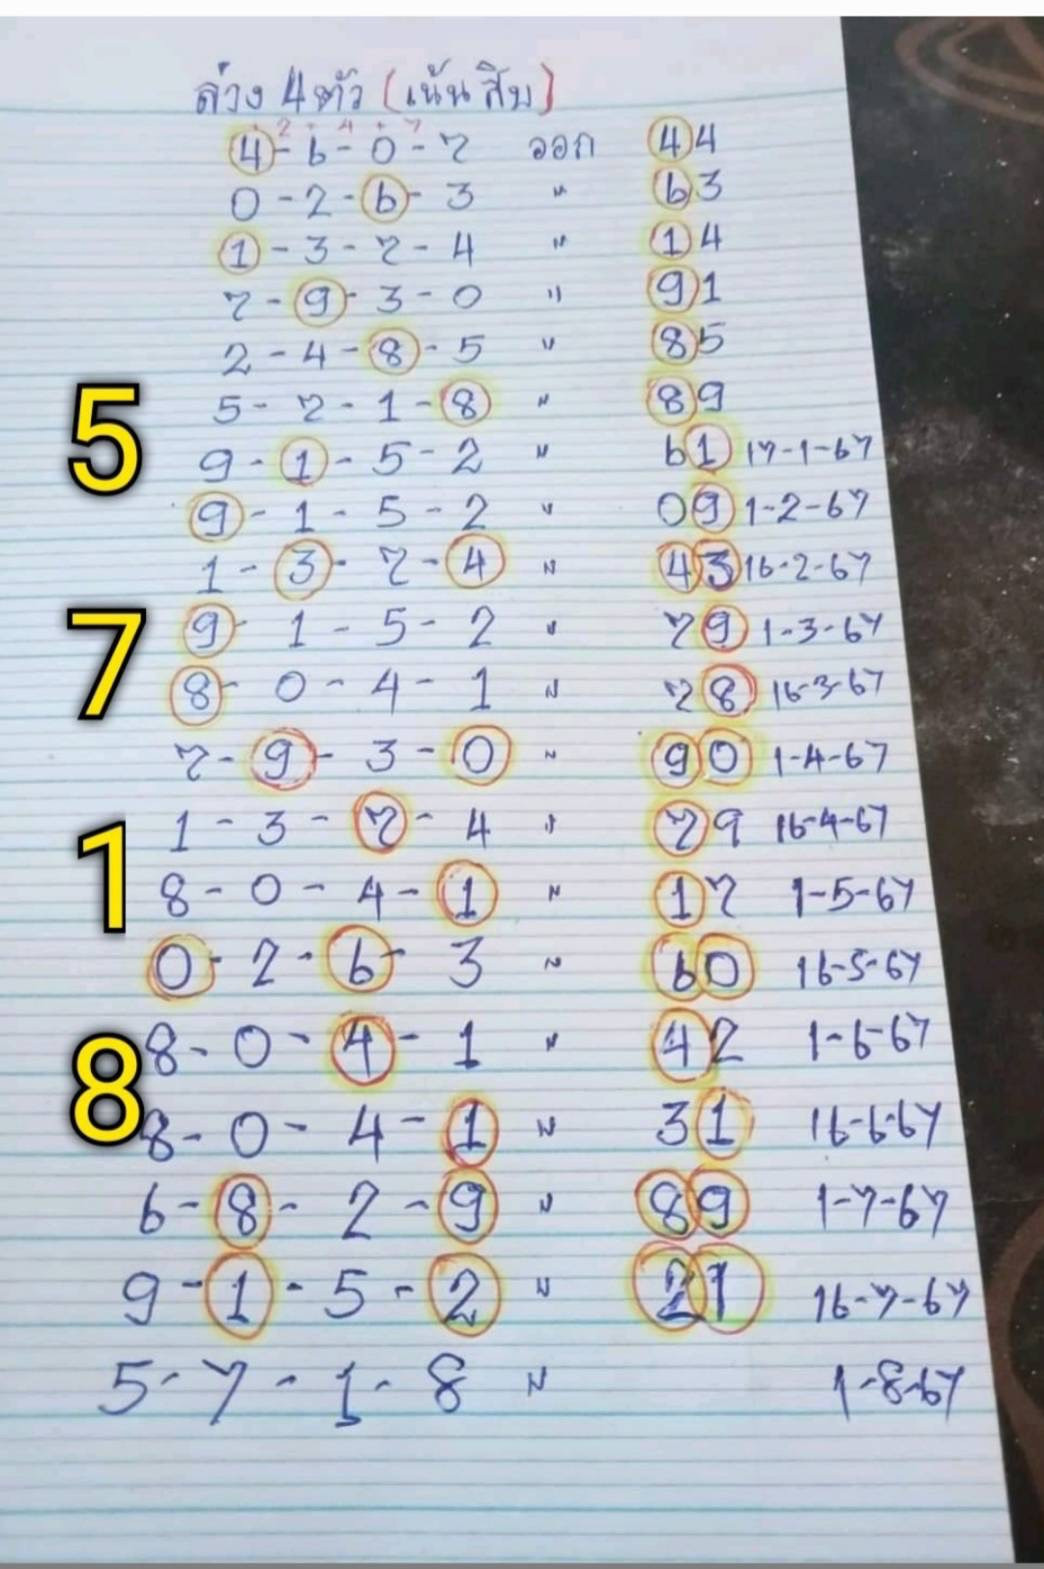 ล่าง 4 ตัว (เน้นสิบ)
2 4 7
4-6-0-7 ออก 44
0-2-6-3 " 63
1-3-7-4 " 14
7-9-3-0 " 91
2-4-8-5 " 85
5-7-1-8 " 89
5
9-1-5-2 " 61 17-1-67
9-1-5-2 " 09 1-2-67
1-3-7-4 " 43 16-2-67
7
9-1-5-2 " 79 1-3-67
8-0-4-1 " 78 16-3-67
7-9-3-0 " 90 1-4-67
1-3-7-4 " 79 16-4-67
1
8-0-4-1 " 17 1-5-67
0-2-6-3 " 60 16-5-67
8-0-4-1 " 42 1-6-67
8
8-0-4-1 " 31 16-6-67
6-8-2-9 " 89 1-7-67
9-1-5-2 " 21 16-7-67
5-7-1-8 " 1-8-67